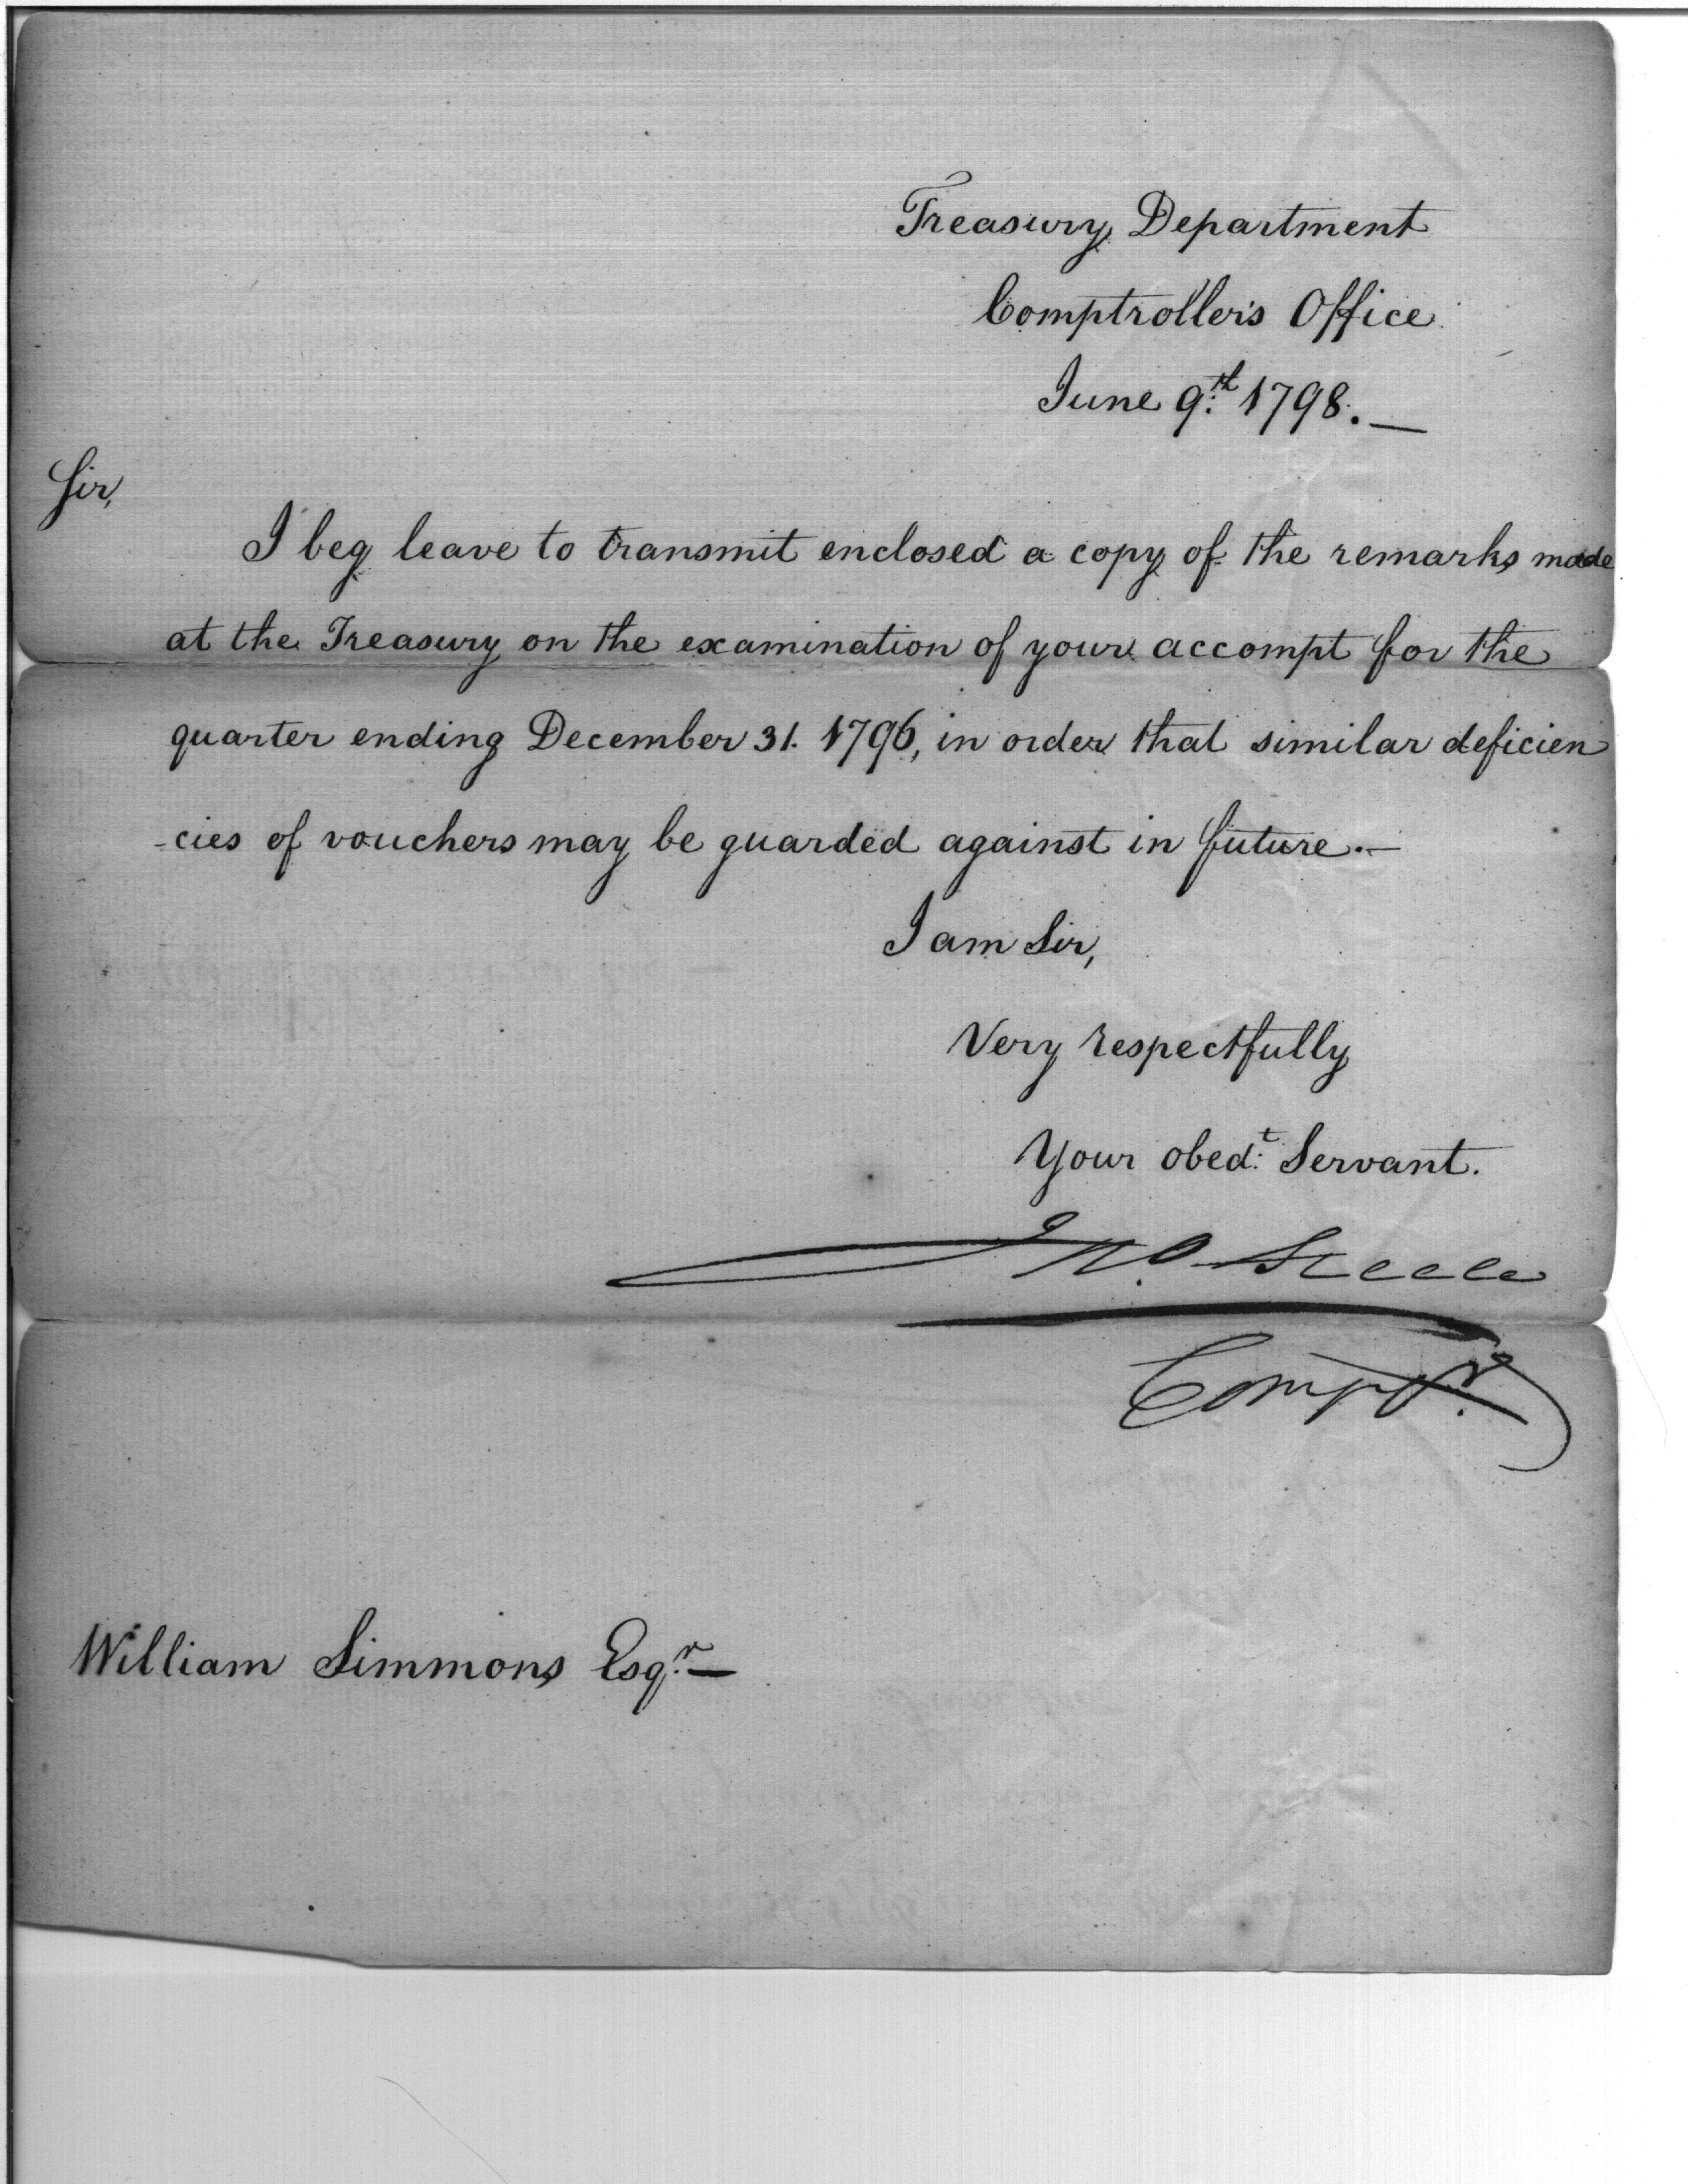 Treasury Department
Comptroller's Office
June 9th 1798.—
Sir,
I beg leave to transmit enclosed a copy of the remarks made
at the Treasury on the examination of your accompt for the
quarter ending December 31. 1796, in order that similar deficien
-cies of vouchers may be guarded against in future.—
I am Sir,
Very respectfully
Your obedt. Servant.
Jno. Steele
Comptr.
William Simmons Esqr.—